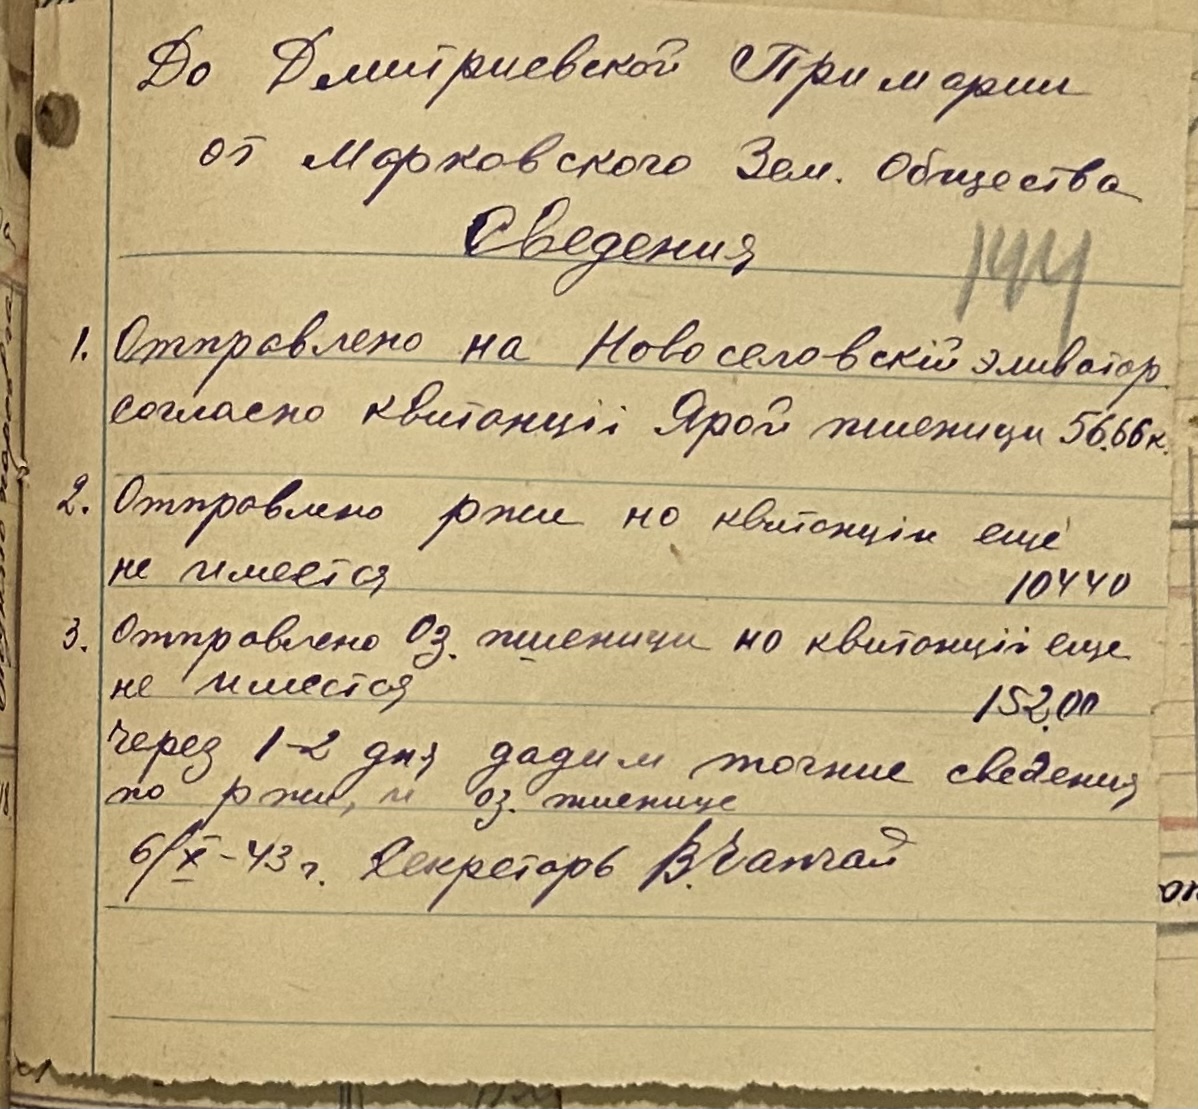 До Дмитриевской Примарии
от Марковского Зем. Общества
Сведения
144
1. Отправлено на Новоселовскій эливатор
согласно квитанціі Ярой пшеници 56,66 к.
2. Отправлено ржи но квитанціи ещё
не имеется 10440
3. Отправлено Оз. пшеници но квитанціі еще
не имеется 152,00
Через 1-2 дня дадим точние сведения
по ржи, и оз. пшенице
6/X-43 г. Секретарь